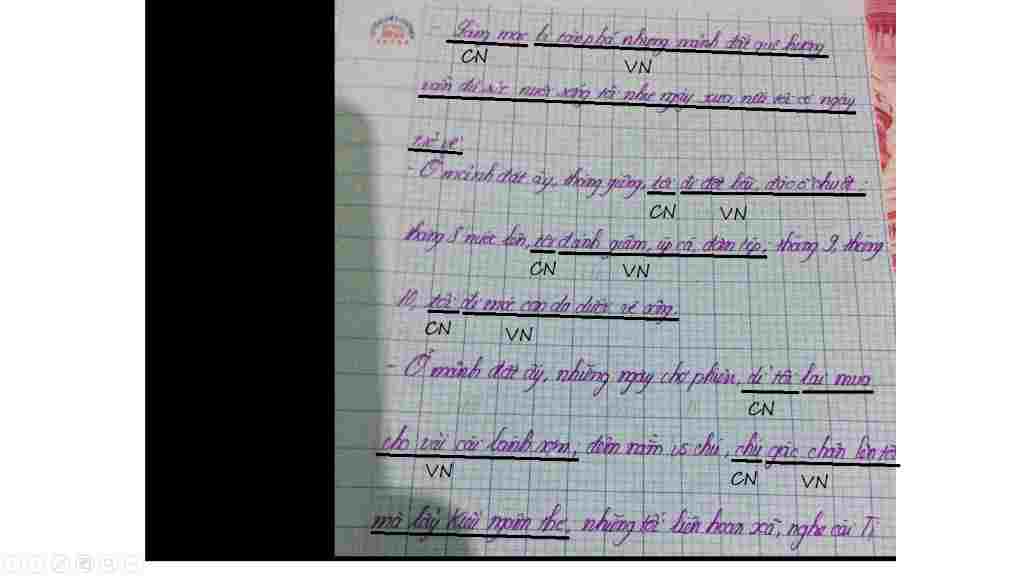 - Làng mạc bị tàn phá nhưng mảnh đất quê hương
CN VN
vẫn đủ sức nuôi sống tôi như ngày xưa nếu tôi có ngày
trở về.
- Ở mảnh đất ấy, tháng giêng, tôi đi đốt bãi, đào ổ chuột;
CN VN
tháng 8 nước lên, tôi đánh giậm, úp cá, đơm tép; tháng 9, tháng
CN VN
10, tôi đi móc con da dưới vệ sông.
CN VN
- Ở mảnh đất ấy, những ngày chợ phiên, dì tôi lại mua
CN
cho vài cái bánh rợm; đêm nằm vs chú, chú gác chân lên tôi
VN CN VN
mà lẩy Kiều ngâm thơ; những tối liên hoan xã, nghe cái Tị